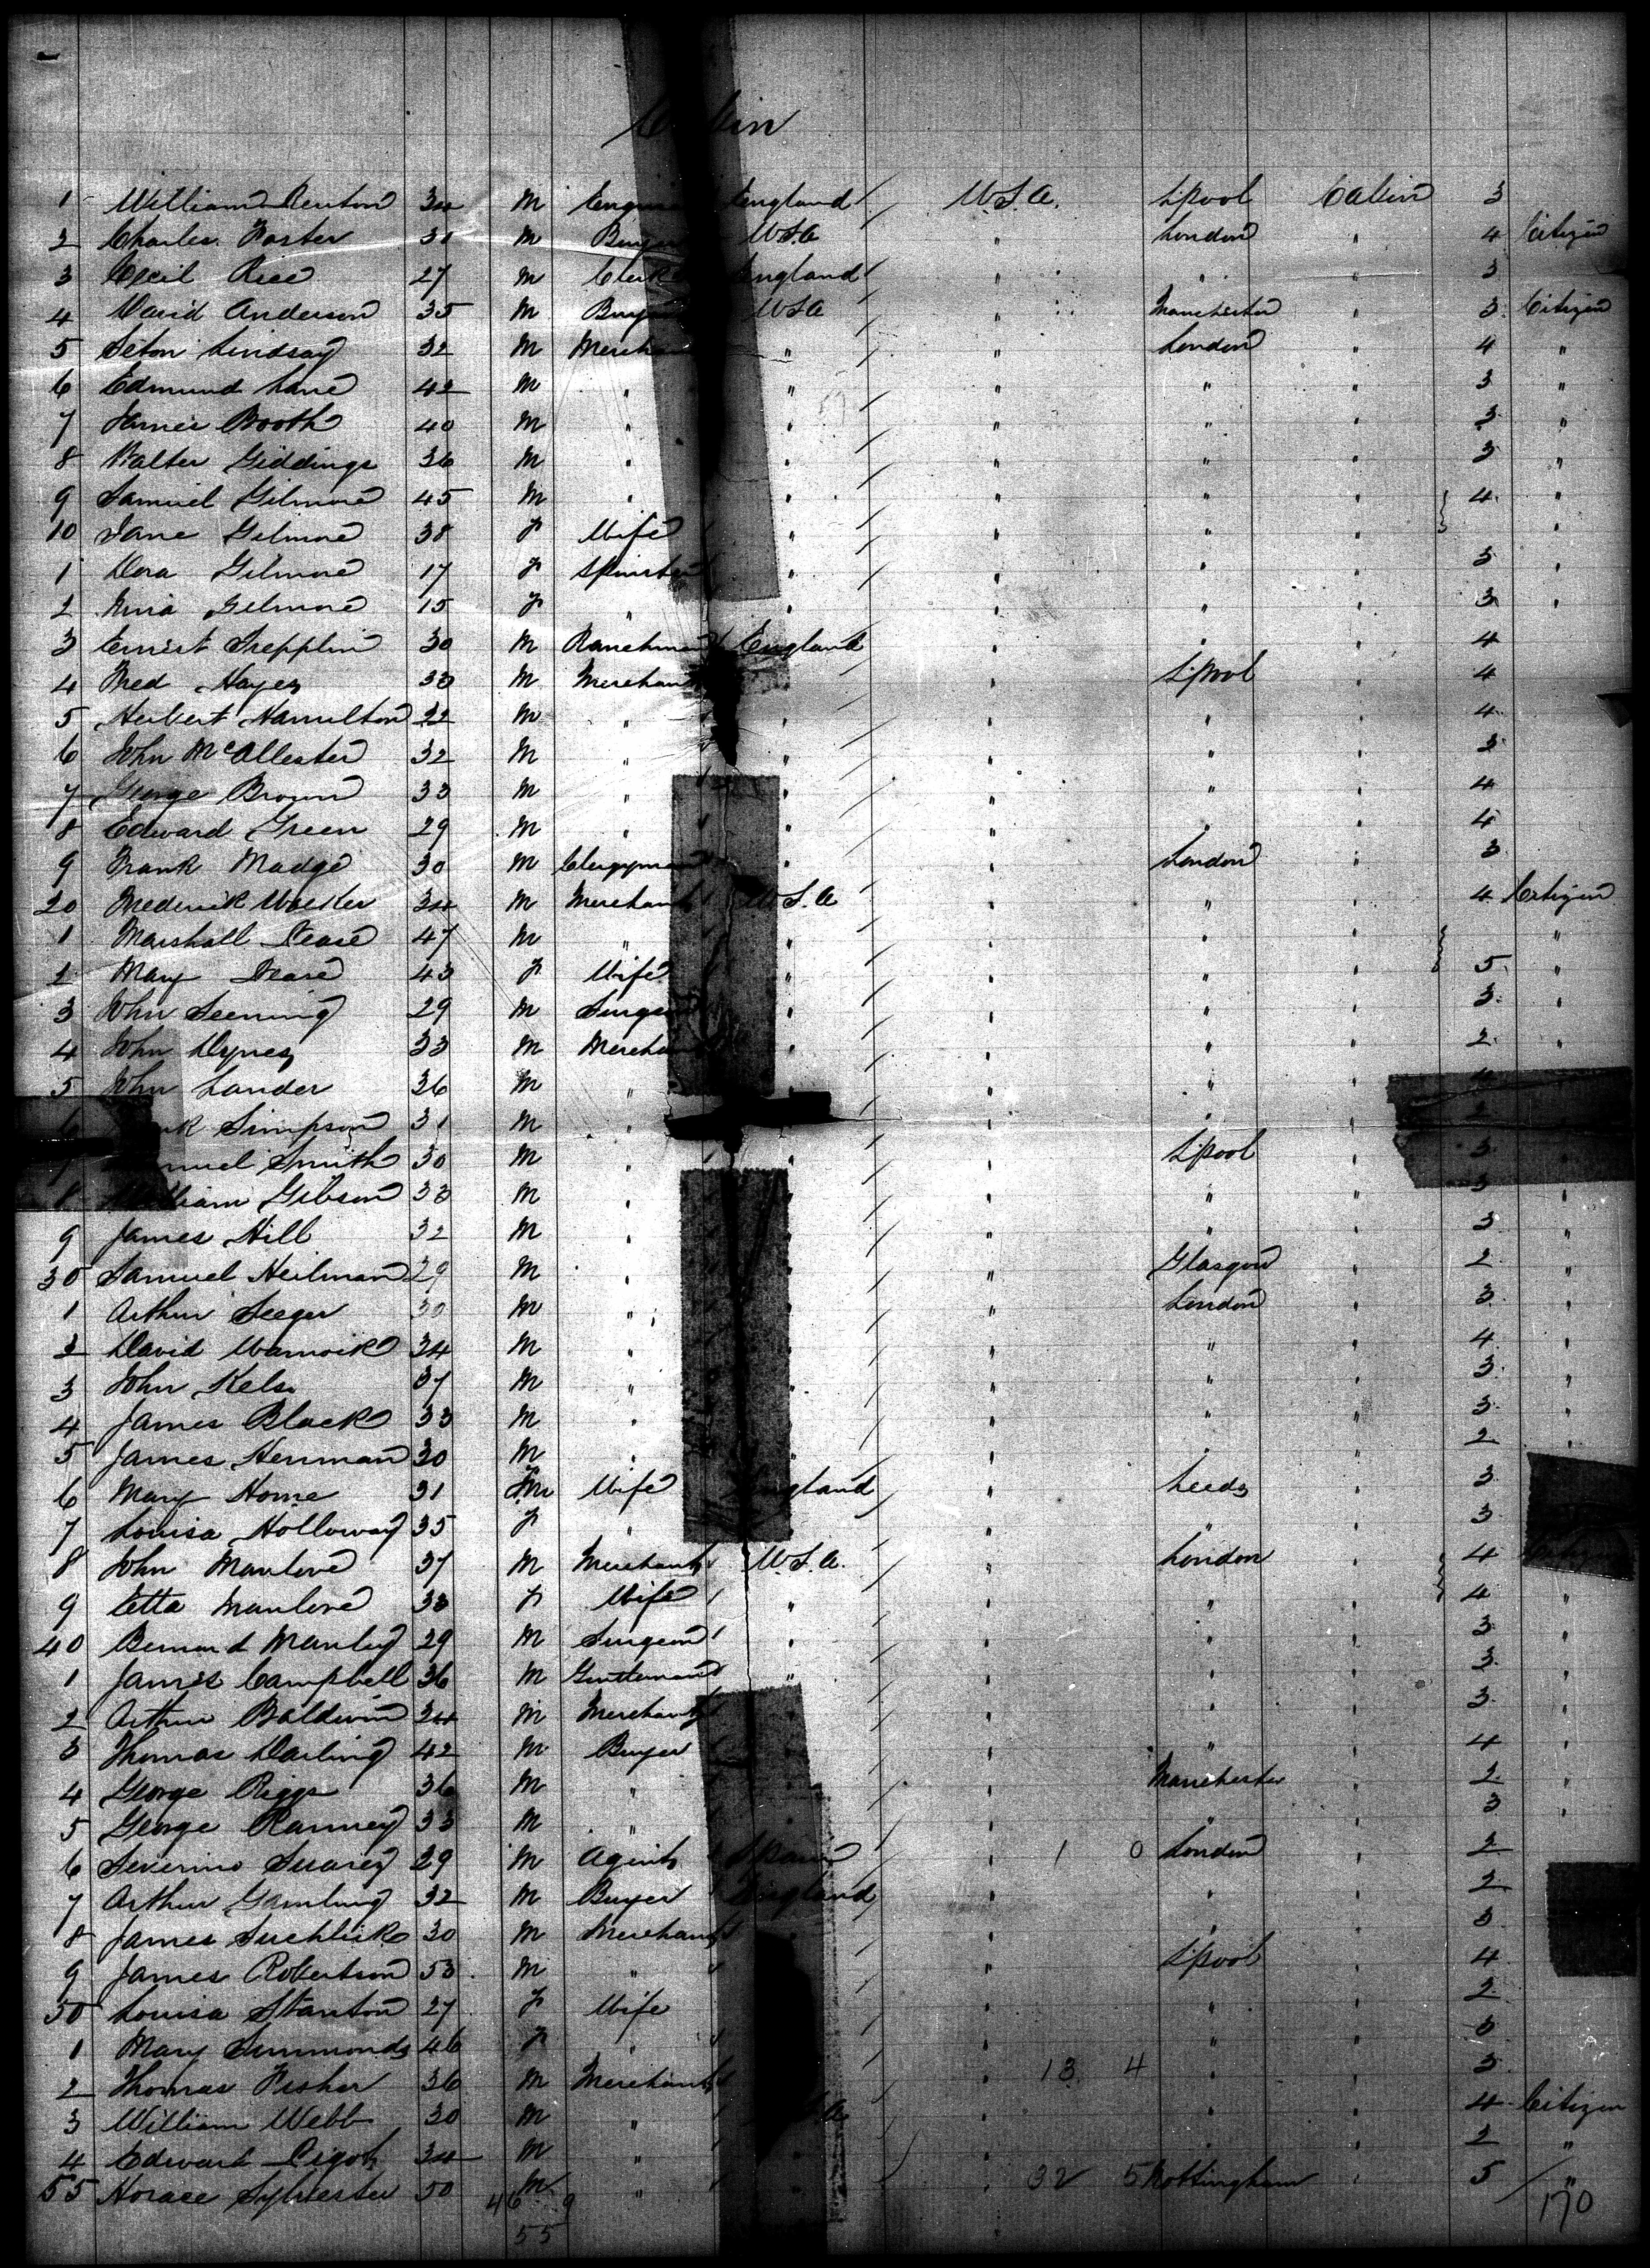 Cabin
1 William Renton 34 M England / U.S.A. L'pool Cabin 3
2 Charles Foster 31 M Buyer USA " London " 4 Citizen
3 Cecil Rice 27 M Clerk England / " " " 3
4 David Anderson 35 M Buyer USA / " Manchester " 3 Citizen
5 Seton Lindsay 32 M Merchant " / " London " 4 "
6 Edmund Lane 42 M " " / " " " 3 "
7 James Booth 40 M " " / " " " 3 "
8 Walter Giddings 36 M " " / " " " 3 "
9 Samuel Gilmore 45 M " " / " " " 4 "
10 Jane Gilmore 38 F Wife " / " " " "
1 Dora Gilmore 17 F Spinster " / " " " 3 "
2 Gilmore 15 F " " / " " " 3 "
3 Ernest 30 M Ranchman England " " " 4
4 Fred Hayes 33 M Merchant / " L'pool " 4
5 Herbert Hamilton 32 M " " / " " " 4
6 John McAllester 32 M " " / " " " 3
7 George Brown 33 M " " / " " " 4
8 Edward Green 29 M " " / " " " 4
9 Frank Madge 30 M Clergyman " / " London " 3
20 Frederick Walker 34 M Merchant U.S.A / " " " 4 Citizen
1 Marshall Pease 47 M " " / " " " "
2 Mary Pease 43 F Wife " / " " " 5 "
3 John 29 M Surgeon " / " " " 3 "
4 John Dynes 33 M Merchant " / " " " 2 "
5 John Lander 36 M " " / " " "
Simpson 31 M " / " " "
Samuel Smith 30 M " " / " L'pool " 3
8 William Gibson 33 M " " / " " " 3 "
9 James Hill 32 M " " / " " " 3 "
30 Samuel Heilman 29 M " " / " Glasgow " 2 "
1 Arthur Seeger 30 M " " / " London " 3 "
2 David Warnock 34 M " " / " " " 4 "
3 John Kelso 37 M " " / " " " 3 "
4 James Black 33 M " " / " " " 3 "
5 James Herman 30 M " " / " " " 2 "
6 Mary Horne 31 F Wife England / " Leeds " 3
7 Louisa Holloway 35 F " / " " " 3
8 John Manlove 37 M Merchant U.S.A. / " London " 4
9 Etta Manlove 33 F Wife " / " " " 4 "
40 Bernard Manley 29 M Surgeon " / " " " 3 "
1 James Campbell 36 M Gentleman " / " " " 3 "
2 Arthur Baldwin 34 M Merchant / " " " 3 "
3 Thomas Darling 42 M Buyer / " " " 4 "
4 George Riggs 36 M " / " Manchester " 2 "
5 George Ranney 33 M " / " " " 3 "
6 Severino Suarez 29 M Agent Spain / " 1 0 London " 2
7 Arthur Gambling 32 M Buyer England / " " " 2
8 James 30 M Merchant / " " " 3
9 James Robertson 53 M " / " L'pool " 4
50 Louisa Stanton 27 F Wife / " " " 2
1 Mary Simmonds 46 F " / " " " 3
2 Thomas Fisher 36 M Merchant / " 13 4 " " 3
3 William Webb 30 M " / " " " 4 Citizen
4 Edward Pigot 34 M " / " " " 2 "
55 Horace Sylvester 50 M " / " 32 5 Nottingham " 5 "
46 9
55
170